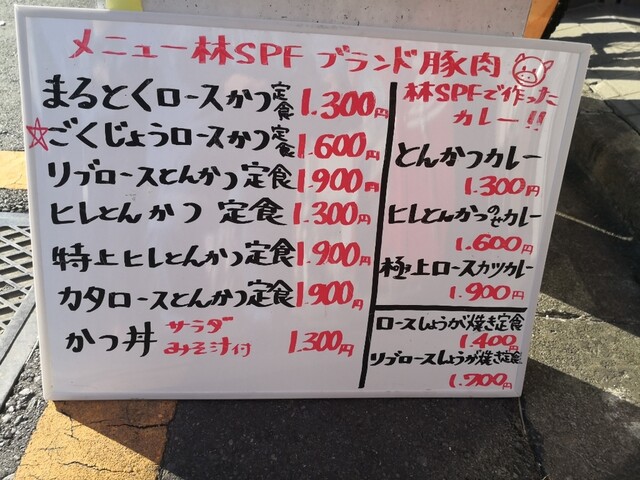 メニュー林SPF ブランド豚肉
まるとくロースかつ定食 1.300円
☆ごくじょうロースかつ定食 1.600円
リブロースとんかつ定食 1.900円
ヒレとんかつ 定食 1.300円
特上ヒレとんかつ定食 1.900円
カタロースとんかつ定食 1.900円
かつ丼 サラダ みそ汁付 1.300円
林SPFで作った
カレー!!
とんかつカレー
1.300円
ヒレとんかつのせカレー
1.600円
極上ロースカツカレー
1.900円
ロースしょうが焼き定食
1.400円
リブロースしょうが焼き定食
1.700円